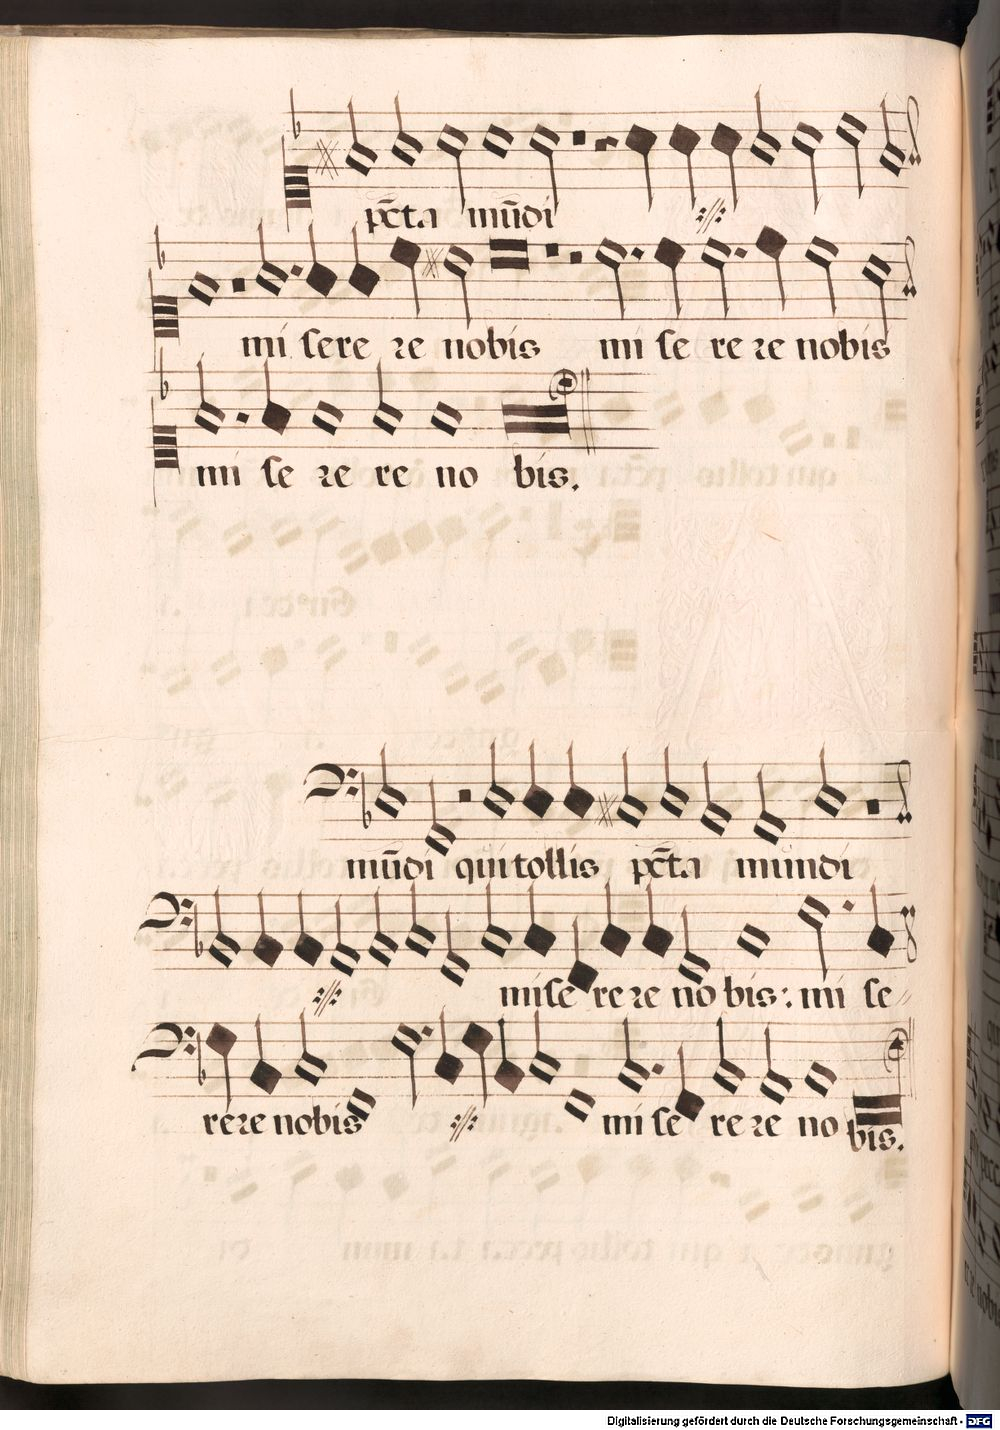 pc̄ta mūdi
mi sere re nobis mi se re re nobis
mi se re re no bis.
mūdi qui tollis pc̄ta mundi
mise re re no bis: mi se
re re nobis mi se re re no bis.
Digitalisierung gefördert durch die Deutsche Forschungsgemeinschaft - DFG